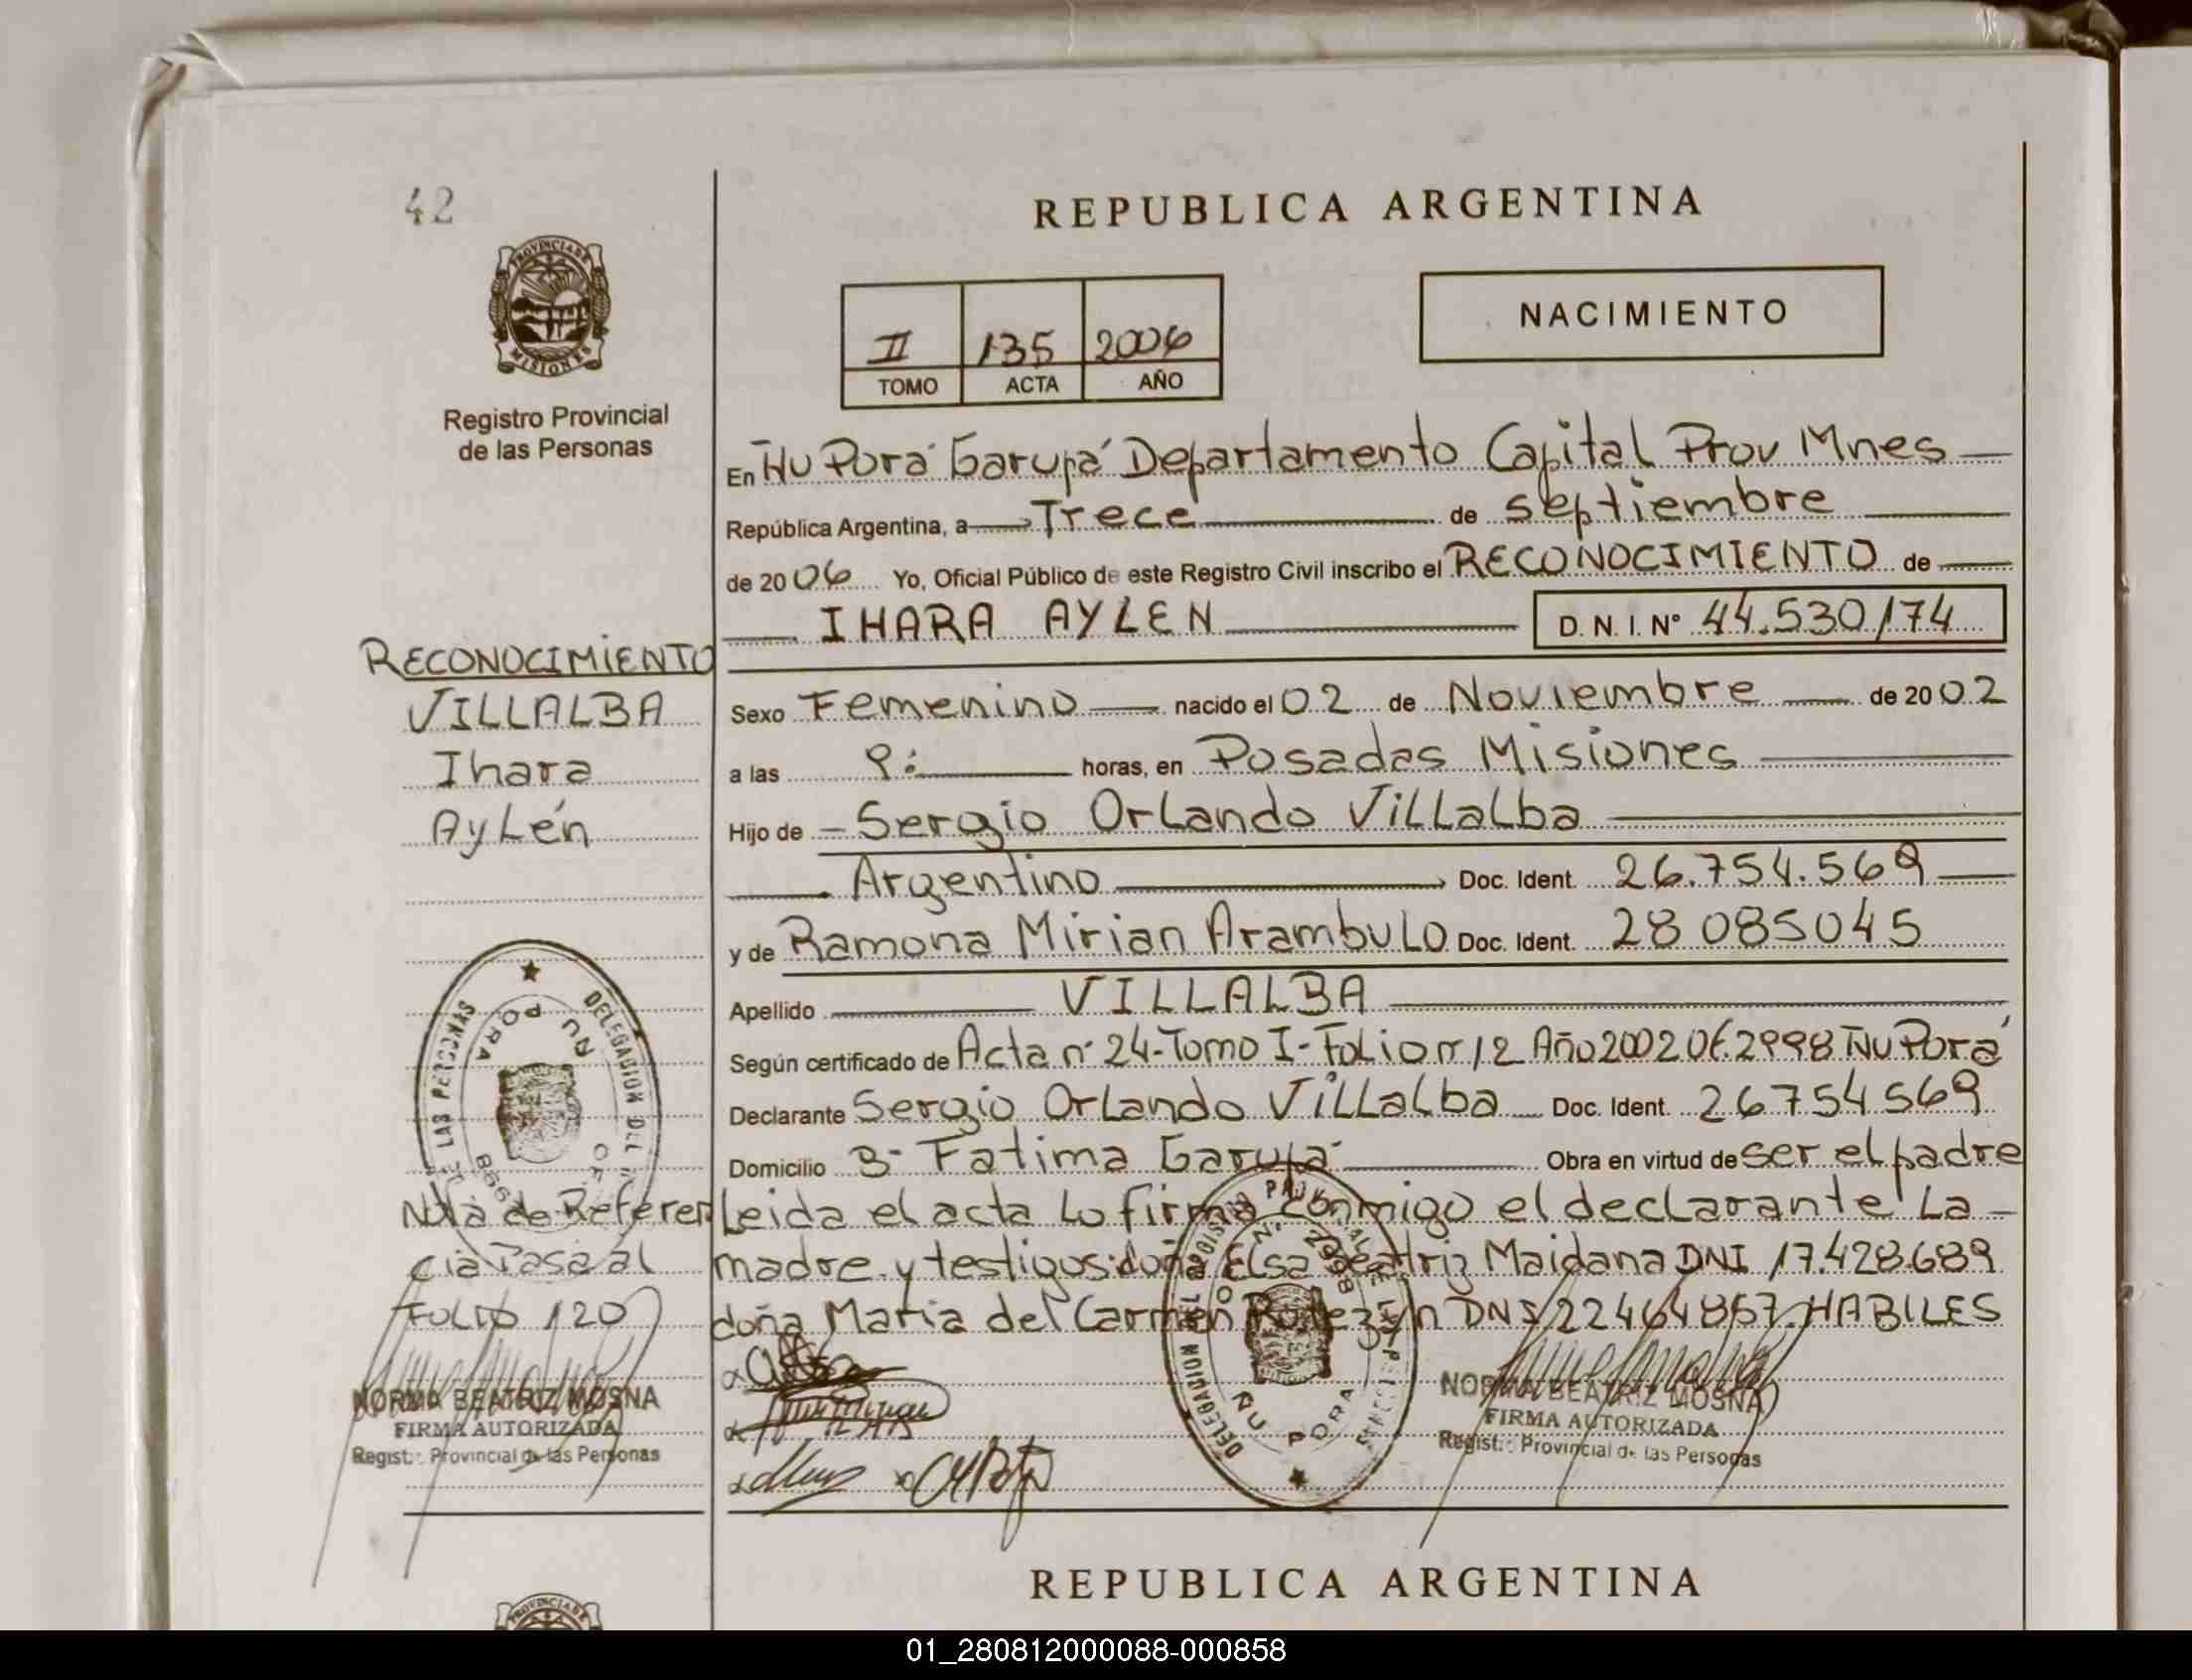 42
REPUBLICA ARGENTINA
PROVINCIA DE
MISIONES
Registro Provincial
de las Personas
II 135 2006
TOMO ACTA AÑO
NACIMIENTO
En Ñu Porá Garupá Departamento Capital Prov Mnes
República Argentina, a Trece de septiembre
de 2006 Yo, Oficial Público de este Registro Civil inscribo el RECONOCIMIENTO de
IHARA AYLEN D.N.I. Nº 44.530174
RECONOCIMIENTO
VILLALBA
Ihara
Aylén
Sexo Femenino nacido el 02 de Noviembre de 2002
a las 9: horas, en Posadas Misiones
Hijo de Sergio Orlando Villalba
Argentino Doc. Ident. 26.754.569
y de Ramona Mirian Arambulo Doc. Ident. 28085045
Apellido VILLALBA
Según certificado de Acta nº 24-Tomo I-Folio nº 12 Año 2002 Of. 2998 Ñu Porá
Declarante Sergio Orlando Villalba Doc. Ident. 26754569
Domicilio Bº Fatima Garupá Obra en virtud de ser el padre
Leida el acta lo firma conmigo el declarante La
madre y testigos: doña Elsa Beatriz Maidana DNI 17.428.689
doña Maria del Carmen DNI 22464857. HABILES
Nota de Referen
cia Pasa al
FOLIO 120
NORMA BEATRIZ MOSNA
FIRMA AUTORIZADA
Regist. Provincial de las Personas
DELEGACION DEL
DE LAS PERSONAS
ÑU PORA
OF.
DELEGACION DEL
ÑU PORA
NORMA BEATRIZ MOSNA
FIRMA AUTORIZADA
Regist. Provincial de las Personas
REPUBLICA ARGENTINA
PROVINCIA DE
01_280812000088-000858